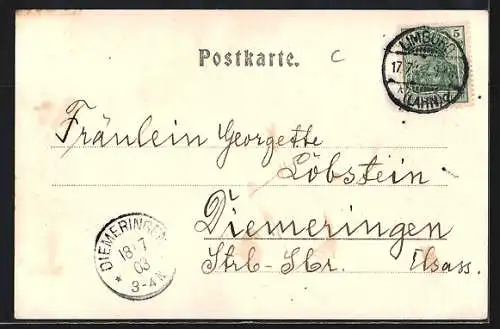 Postkarte.
C
5
LIMBURG
17.7
(LAHN)
Fräulein Georgette
Löbstein
Diemeringen
Strb-Sbr. Elsass.
DIEMERINGEN
18 7
03
* 3-4 N